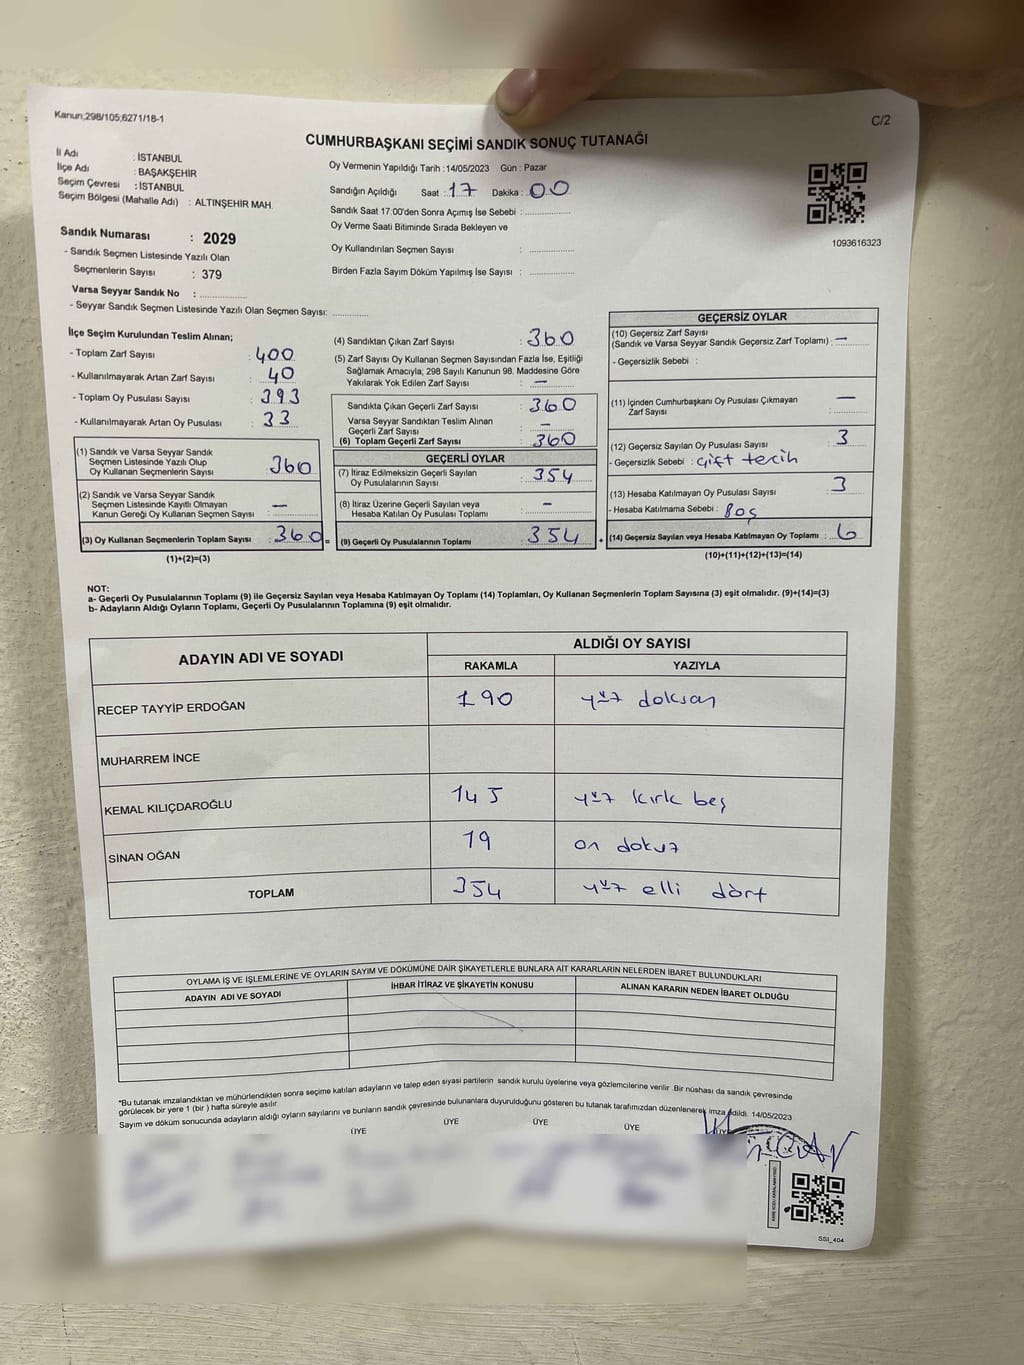 Kanun;298/105,6271/18-1
C/2
CUMHURBAŞKANI SEÇİMİ SANDIK SONUÇ TUTANAĞI
İl Adı : İSTANBUL
İlçe Adı : BAŞAKŞEHİR
Seçim Çevresi : İSTANBUL
Seçim Bölgesi (Mahalle Adı) : ALTINŞEHİR MAH.
Sandık Numarası : 2029
- Sandık Seçmen Listesinde Yazılı Olan
Seçmenlerin Sayısı : 379
Varsa Seyyar Sandık No : ..............
- Seyyar Sandık Seçmen Listesinde Yazılı Olan Seçmen Sayısı: ............
Oy Vermenin Yapıldığı Tarih : 14/05/2023 Gün : Pazar
Sandığın Açıldığı Saat : 17 Dakika : 00
Sandık Saat 17:00'den Sonra Açımış İse Sebebi : ..............
Oy Verme Saati Bitiminde Sırada Bekleyen ve
Oy Kullandırılan Seçmen Sayısı : ..............
Birden Fazla Sayım Döküm Yapılmış İse Sayısı : ..............
1093616323
İlçe Seçim Kurulundan Teslim Alınan;
- Toplam Zarf Sayısı : 400
- Kullanılmayarak Artan Zarf Sayısı : 40
- Toplam Oy Pusulası Sayısı : 393
- Kullanılmayarak Artan Oy Pusulası : 33
(1) Sandık ve Varsa Seyyar Sandık
Seçmen Listesinde Yazılı Olup
Oy Kullanan Seçmenlerin Sayısı : 360
(2) Sandık ve Varsa Seyyar Sandık
Seçmen Listesinde Kayıtlı Olmayan
Kanun Gereği Oy Kullanan Seçmen Sayısı : —
(3) Oy Kullanan Seçmenlerin Toplam Sayısı : 360 =
(1)+(2)=(3)
(4) Sandıktan Çıkan Zarf Sayısı : 360
(5) Zarf Sayısı Oy Kullanan Seçmen Sayısından Fazla İse, Eşitliği
Sağlamak Amacıyla; 298 Sayılı Kanunun 98. Maddesine Göre
Yakılarak Yok Edilen Zarf Sayısı : —
Sandıkta Çıkan Geçerli Zarf Sayısı : 360
Varsa Seyyar Sandıktan Teslim Alınan
Geçerli Zarf Sayısı : —
(6) Toplam Geçerli Zarf Sayısı : 360
GEÇERLİ OYLAR
(7) İtiraz Edilmeksizin Geçerli Sayılan
Oy Pusulalarının Sayısı : 354
(8) İtiraz Üzerine Geçerli Sayılan veya
Hesaba Katılan Oy Pusulası Toplamı : —
(9) Geçerli Oy Pusulalarının Toplamı : 354 +
GEÇERSİZ OYLAR
(10) Geçersiz Zarf Sayısı
(Sandık ve Varsa Seyyar Sandık Geçersiz Zarf Toplamı) : —
- Geçersizlik Sebebi :
(11) İçinden Cumhurbaşkanı Oy Pusulası Çıkmayan
Zarf Sayısı : —
(12) Geçersiz Sayılan Oy Pusulası Sayısı : 3
- Geçersizlik Sebebi : Çift tercih
(13) Hesaba Katılmayan Oy Pusulası Sayısı : 3
- Hesaba Katılmama Sebebi : Boş
(14) Geçersiz Sayılan veya Hesaba Katılmayan Oy Toplamı : 6
(10)+(11)+(12)+(13)=(14)
NOT:
a- Geçerli Oy Pusulalarının Toplamı (9) ile Geçersiz Sayılan veya Hesaba Katılmayan Oy Toplamı (14) Toplamları, Oy Kullanan Seçmenlerin Toplam Sayısına (3) eşit olmalıdır. (9)+(14)=(3)
b- Adayların Aldığı Oyların Toplamı, Geçerli Oy Pusulalarının Toplamına (9) eşit olmalıdır.
ADAYIN ADI VE SOYADI ALDIĞI OY SAYISI
RAKAMLA YAZIYLA
RECEP TAYYİP ERDOĞAN 190 yüz doksan
MUHARREM İNCE
KEMAL KILIÇDAROĞLU 145 yüz kırk beş
SİNAN OĞAN 19 on dokuz
TOPLAM 354 yüz elli dört
OYLAMA İŞ VE İŞLEMLERİNE VE OYLARIN SAYIM VE DÖKÜMÜNE DAİR ŞİKAYETLERLE BUNLARA AİT KARARLARIN NELERDEN İBARET BULUNDUKLARI
ADAYIN ADI VE SOYADI İHBAR İTİRAZ VE ŞİKAYETİN KONUSU ALINAN KARARIN NEDEN İBARET OLDUĞU
*Bu tutanak imzalandıktan ve mühürlendikten sonra seçime katılan adayların ve talep eden siyasi partilerin sandık kurulu üyelerine veya gözlemcilerine verilir .Bir nüshası da sandık çevresinde
görülecek bir yere 1 (bir ) hafta süreyle asılır.
Sayım ve döküm sonucunda adayların aldığı oyların sayılarını ve bunların sandık çevresinde bulunanlara duyurulduğunu gösteren bu tutanak tarafımızdan düzenlenerek imza edildi. 14/05/2023
ÜYE ÜYE ÜYE ÜYE ÜYE
SSI_404